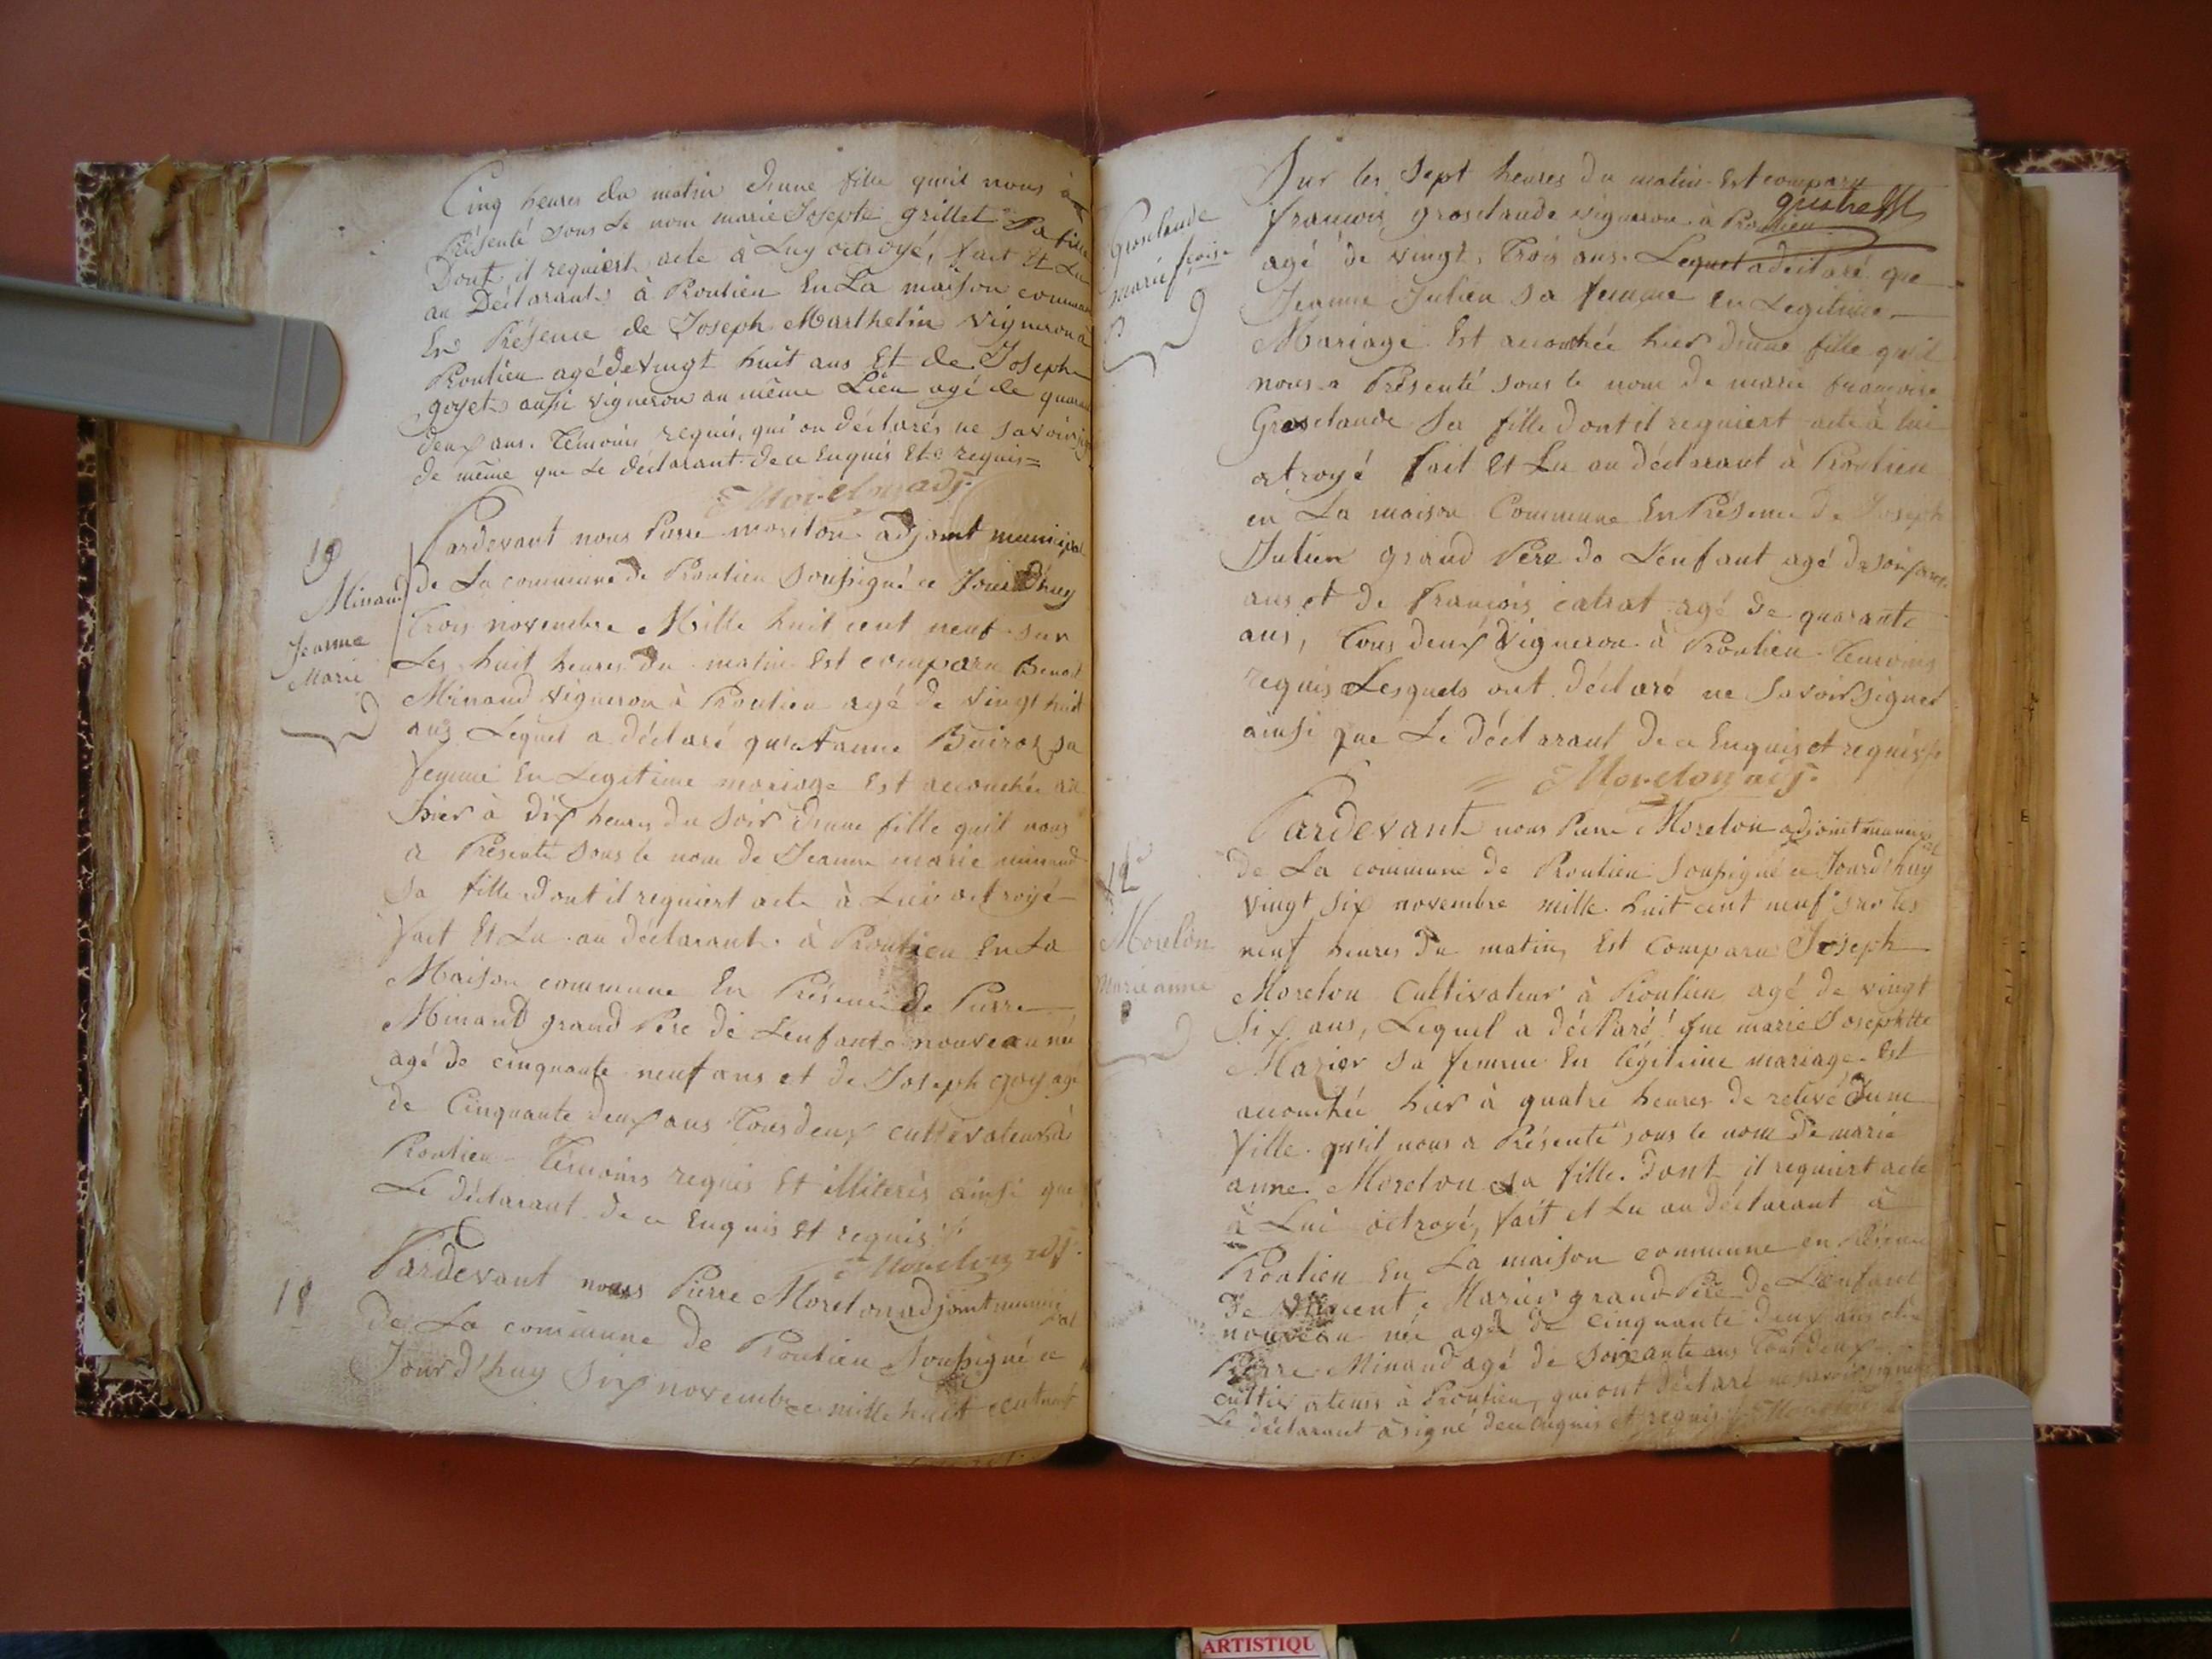 Cinq heures du matin d'une fille qu'il nous à
Présenté sous le nom marie Josephte grillet Sa fille
Dont il requiert acte à Luy octroyé, fait Et Lu
au Déclarant à Poulieu En La maison commune
En Présence de Joseph Marthelin Vigneron à
Poulieu agé de vingt huit ans Et de Joseph
goyet aussi vigneron au même Lieu agé de quarante
deux ans. Témoins requis, qui on déclarés ne savoir
de même que Le déclarant de ce Enquis Et requis =
Morelon adj.
19
Minaud
Jeanne
Marie
Pardevant nous Pierre morelon adjoint municipal
de La commune de Poulieu soussigné ce Jourd'huy
Trois novembre Mille huit cent neuf sur
Les huit heures du matin Est comparu Benoit
Minaud Vigneron à Poulieu agé de vingt huit
ans Lequel a déclaré qu'Anne Buiros sa
femme En Legitime mariage Est accouchée
hier à dix heures du soir d'une fille qu'il nous
a Présenté sous le nom de Jeanne marie minaud
sa fille dont il requiert acte à Lui octroyé
fait Et Lu au déclarant à Poulieu En La
Maison commune En Présence de Pierre
Minaud grand Père de L'enfant nouveau née
agé de cinquante neuf ans et de Joseph goy agé
de Cinquante deux ans Tous deux cultivateurs à
Poulieu Témoins requis Et illiterés ainsi que
Le déclarant de ce Enquis Et requis
Morelon adj.
18
Pardevant nous Pierre Morelon adjoint municipal
de La commune de Poulieu Soussigné ce
Jourd'huy Six novembre mille huit cent neuf
Sur les Sept heures du matin Est comparu
Grosclaude
marie fcoise
françois grosclaude vigneron à Poulieu
agé de vingt Trois ans. Lequel a déclaré que
Jeanne Julien sa femme En Legitime
Mariage Est accouchée hier d'une fille qu'il
nous a Présenté sous le nom de marie françoise
Grosclaude Sa fille dont il requiert acte à lui
octroyé fait Et Lu au déclarant à Poulieu
en La maison Commune En Présence de Joseph
Julien grand Père de L'enfant agé de soixante
ans et de françois catrat agé de quarante
ans, Tous deux Vigneron à Poulieu Témoins
requis Lesquels ont déclaré ne Savoir Signer
ainsi que Le déclarant De ce Enquis et requis
Morelon adj.
12
Morelon
Marie anne
Pardevant nous Pierre Morelon adjoint municipal
de La commune de Poulieu Soussigné ce Jourd'huy
vingt Six novembre mille huit cent neuf sur les
neuf heures du matin Est Comparu Joseph
Morelon Cultivateur à Poulieu agé de vingt
Six ans, Lequel a déclaré que marie Josephtte
Marier sa femme En légitime mariage Est
accouchée hier à quatre heures de relevé d'une
fille qu'il nous a Présenté sous le nom de marie
anne Morelon sa fille. Dont il requiert acte
à Lui octroyé, fait et Lu au déclarant à
Poulieu En La maison commune en Présence
de Vincent Marier grand Père de L'enfant
nouveau née agé de Cinquante deux ans et de
Pierre Minaud agé de Soixante ans Tous deux
cultivateurs à Poulieu, qui ont déclaré ne savoir signer
Le déclarant à signé de ce Enquis et requis
ARTISTIQU